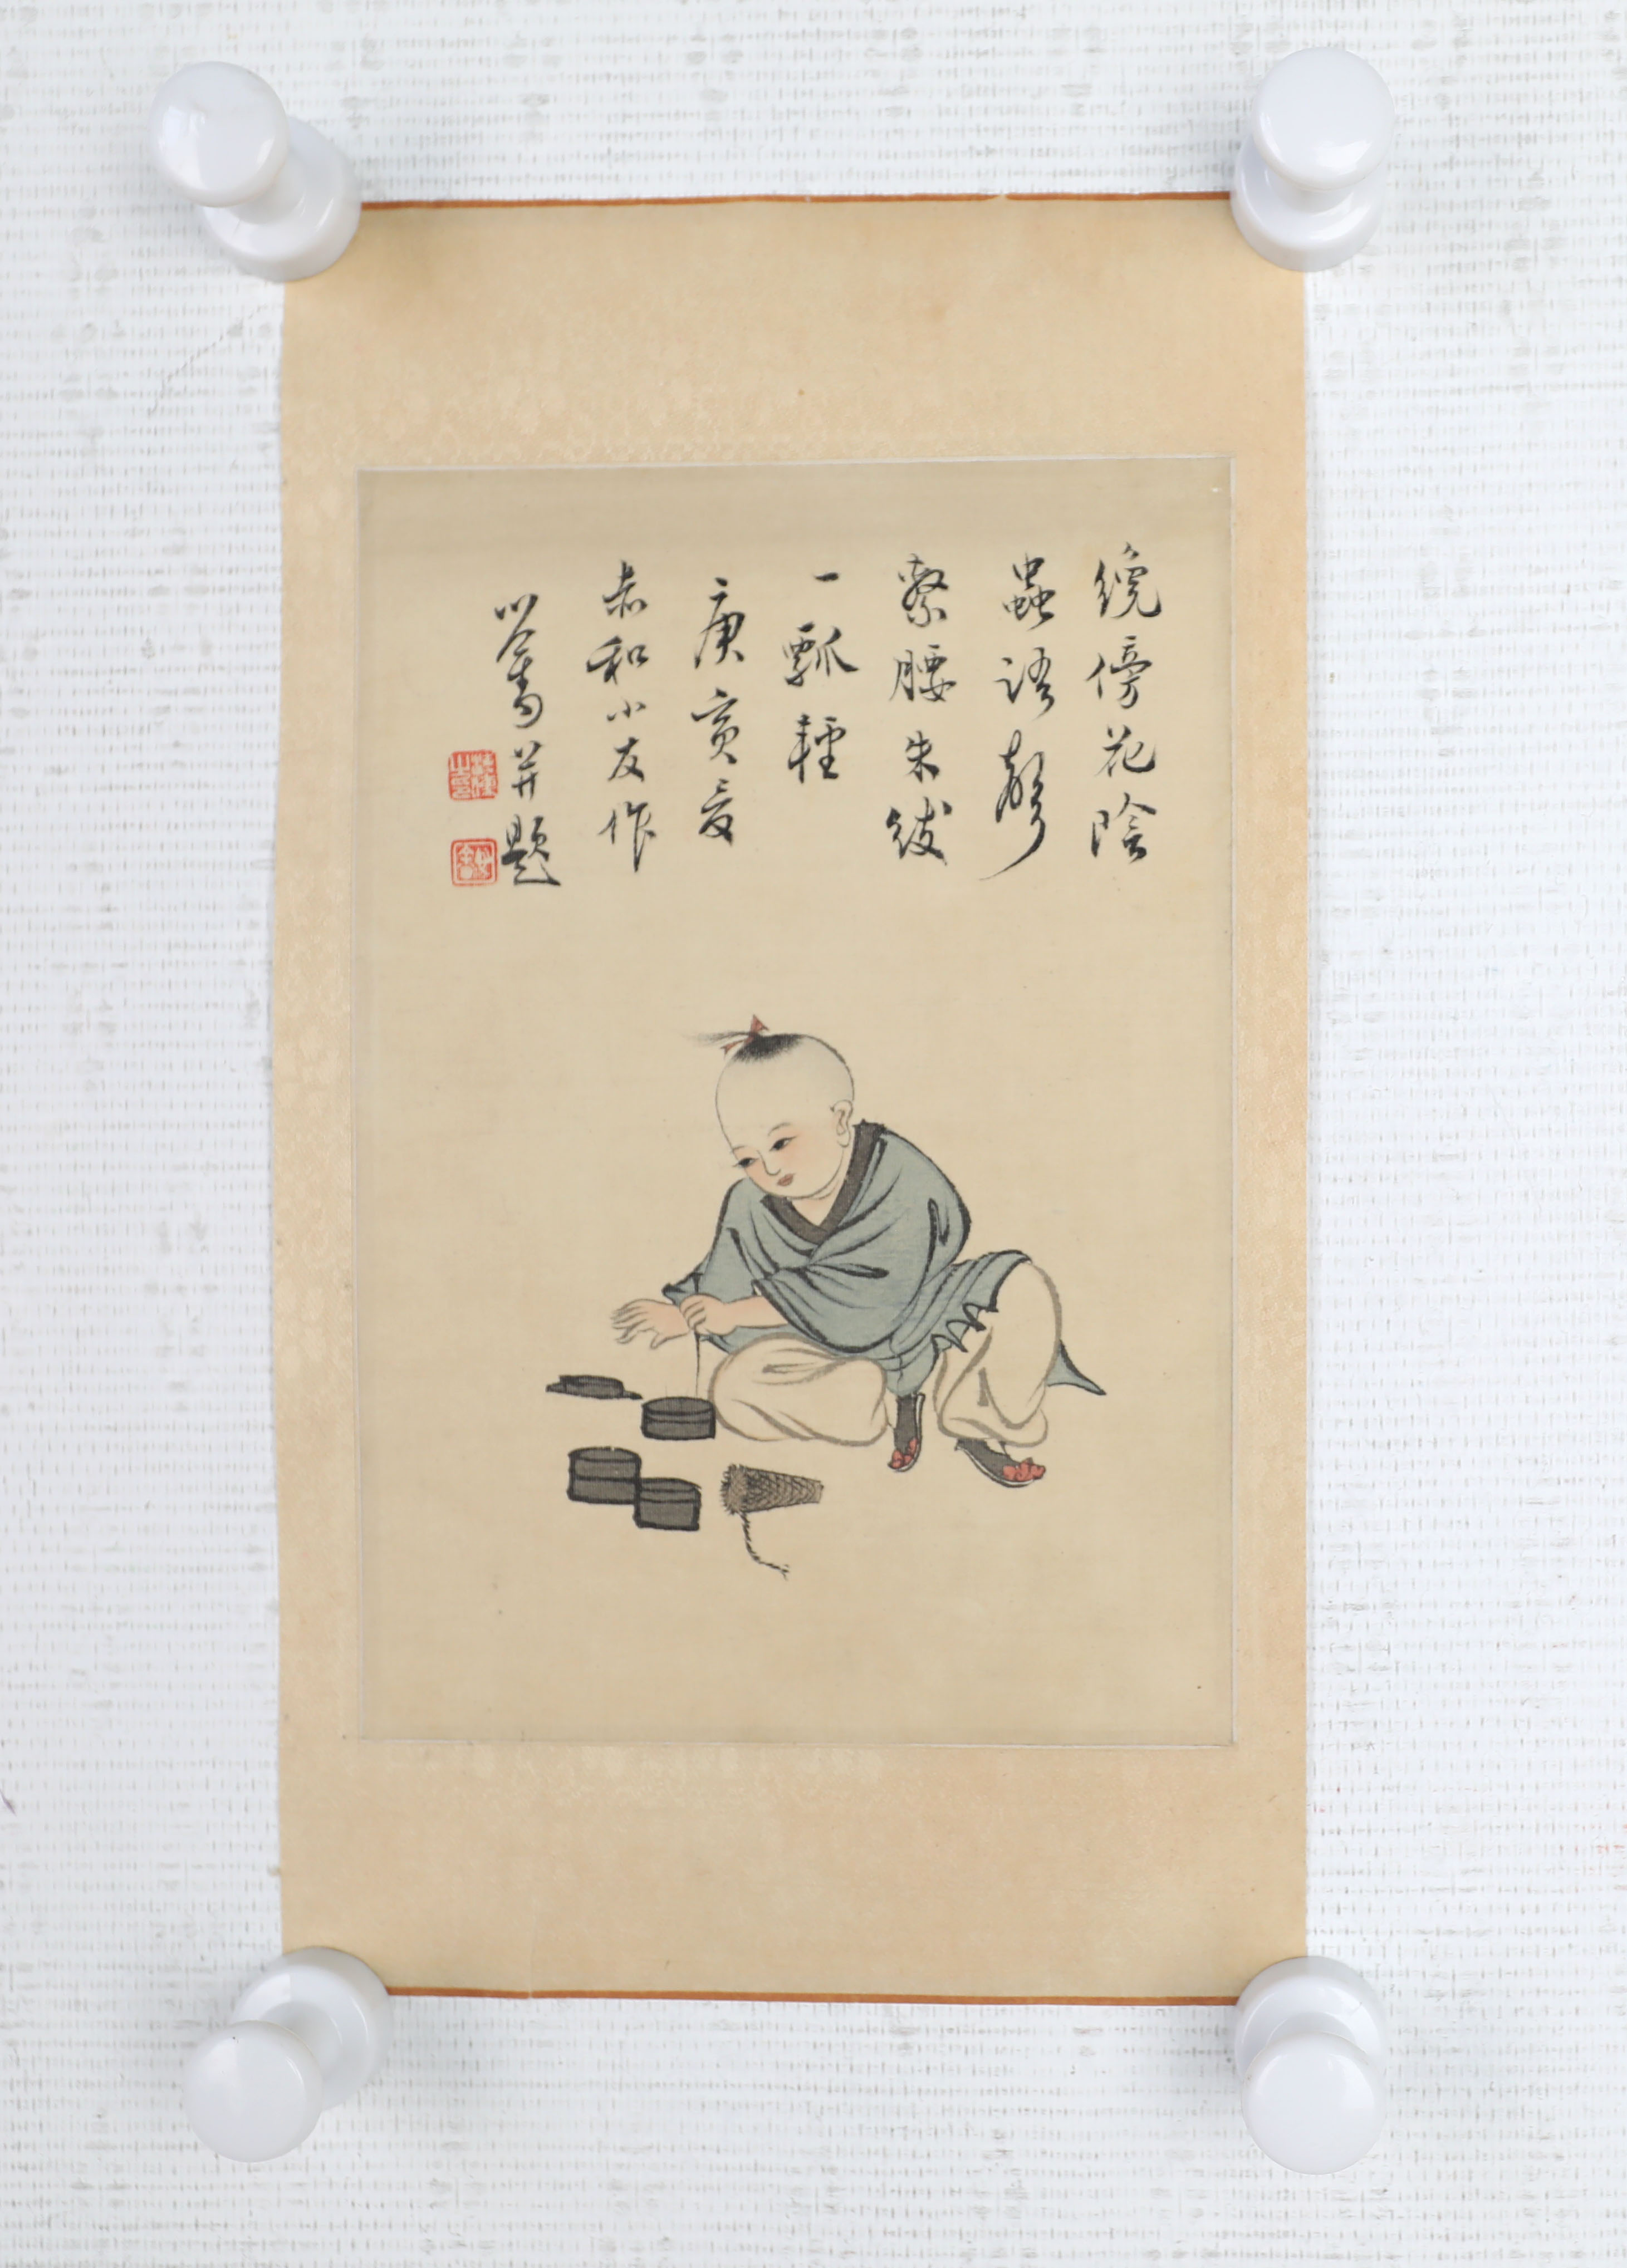 繞傍花陰
蟲語聲
繫腰朱紱
一瓢輕
庚寅夏
赤和小友作
心畬并題